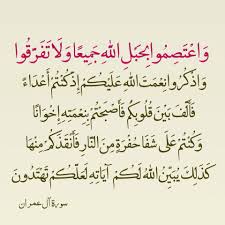 وَاعْتَصِمُوا بِحَبْلِ اللَّهِ جَمِيعًا وَلَا تَفَرَّقُوا
وَاذْكُرُوا نِعْمَتَ اللَّهِ عَلَيْكُمْ إِذْ كُنْتُمْ أَعْدَاءً
فَأَلَّفَ بَيْنَ قُلُوبِكُمْ فَأَصْبَحْتُمْ بِنِعْمَتِهِ إِخْوَانًا
وَكُنْتُمْ عَلَى شَفَا حُفْرَةٍ مِنَ النَّارِ فَأَنْقَذَكُمْ مِنْهَا
كَذَلِكَ يُبَيِّنُ اللَّهُ لَكُمْ آيَاتِهِ لَعَلَّكُمْ تَهْتَدُونَ
سورة آل عمران